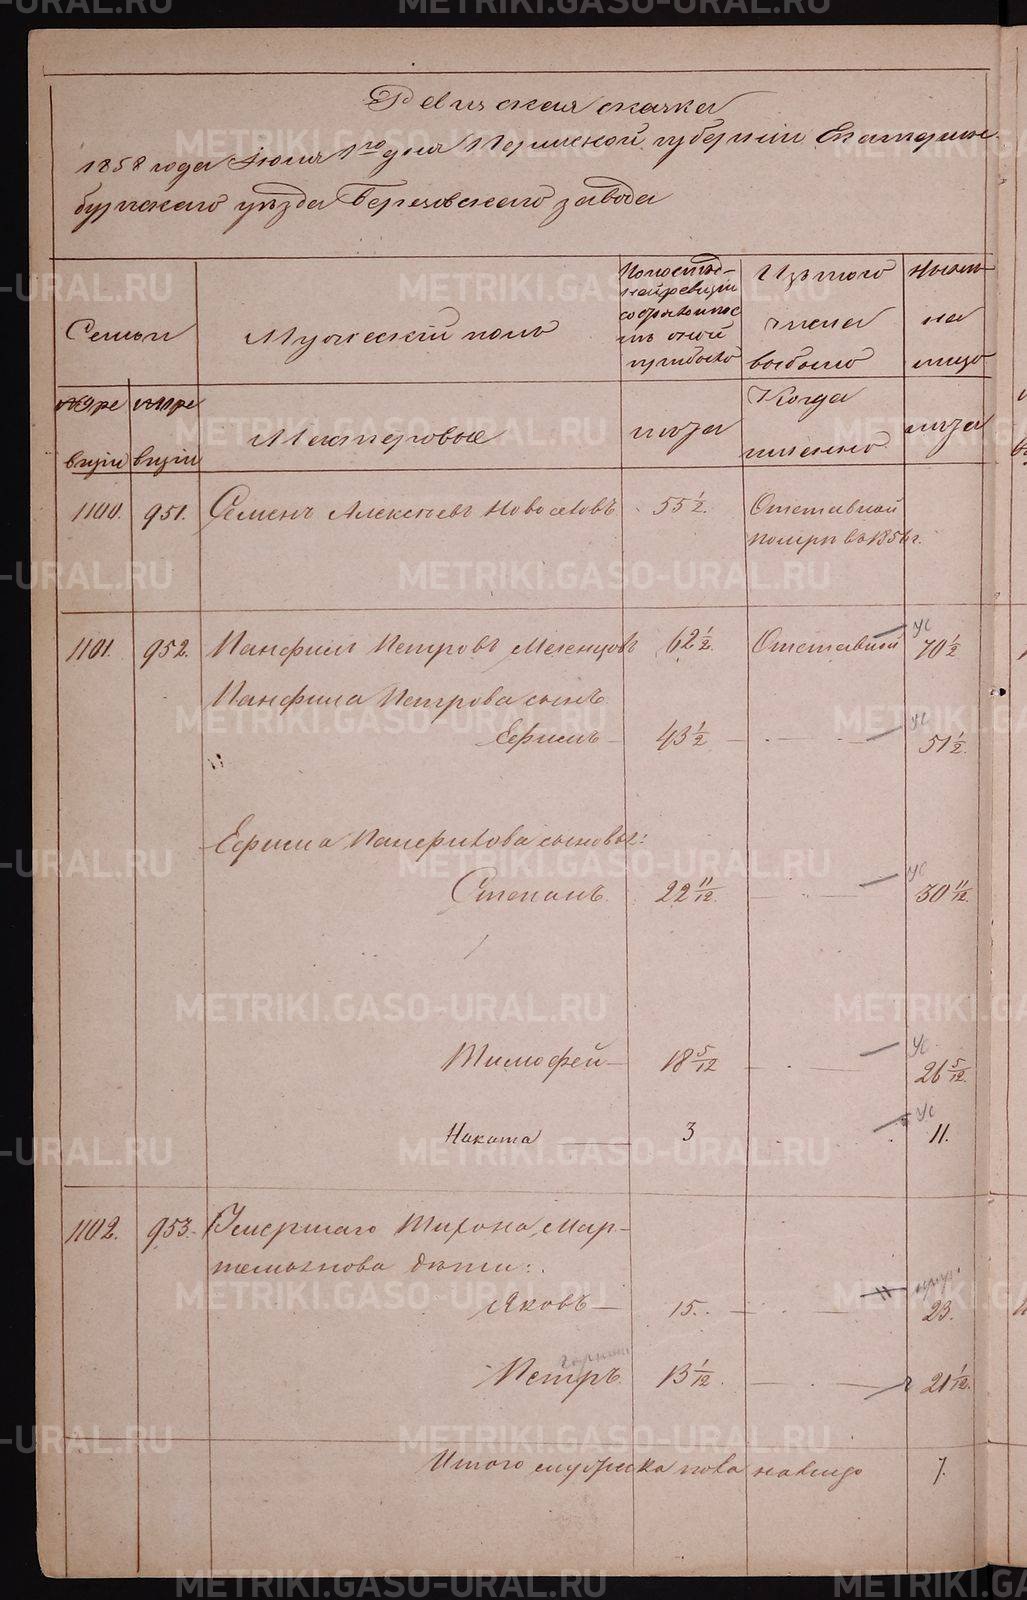 Ревизская сказка
1858 года Июня 1го дня Пермской губернiи Екатерин-
бургскаго уѣзда Березовскаго завода
Семьи
Мужескiй полъ
По послѣд-
ней ревизiи
состояло и пос-
лѣ оной
прибыло
Изъ того
числа
выбыло
Нынѣ
на
лицо
№ 9 ре
визiи
№ 10 ре
визiи
Мастеровые
лѣта
Когда
именно
лѣта
1100. 951. Семенъ Алексѣевъ Новоселовъ 55 1/2. Отставной
померъ въ 1856 г.
1101. 952. Панфилъ Петровъ Мезенцовъ 62 1/2. Отставной 70 1/2
Панфила Петрова сынъ
Ефимъ 43 1/2 51 1/2.
Ефима Панфилова сыновья:
Степанъ 22 11/12. 30 11/12.
Тимофей 18 5/12 26 5/12.
Никита 3 11.
1102. 953. Умершаго Тихона Мар-
темьянова дѣти:
Яковъ 15. 23.
Петръ 13 1/12. 21 1/12.
Итого мужеска пола налицо 7.
METRIKI.GASO-URAL.RU